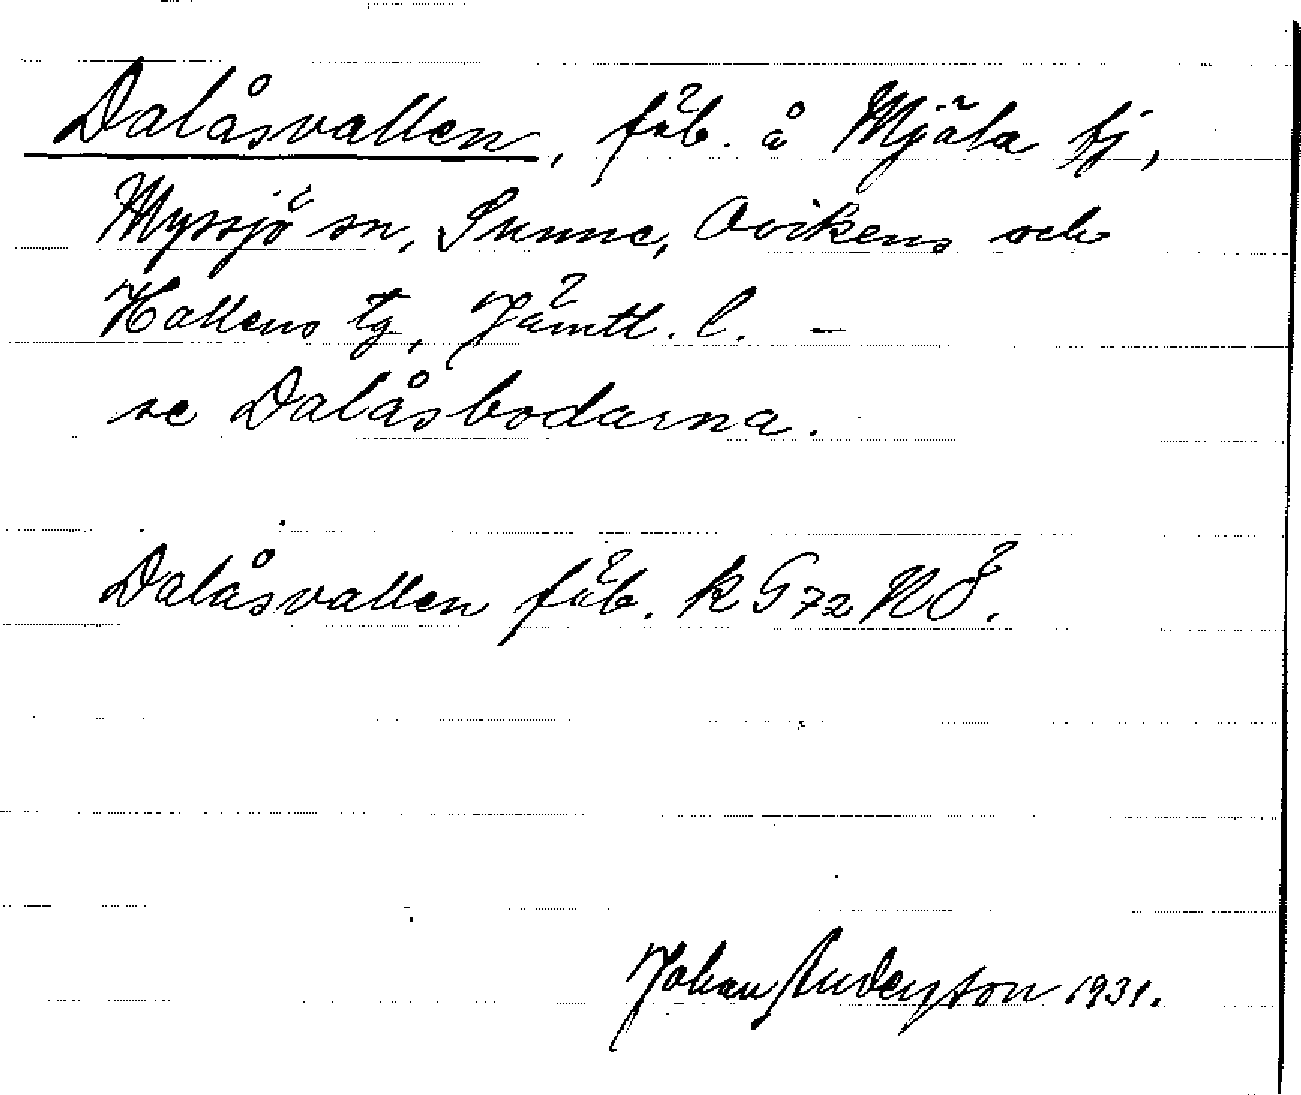 Dalåsvallen, fäb. å Mjäla bj,
Myssjö sn, Sunne, Ovikens och
Hallens tg, Jämtl. l. –
se Dalåsbodarna.
Dalåsvallen fäb. k G72 NÖ.
Johan Anderson 1931.